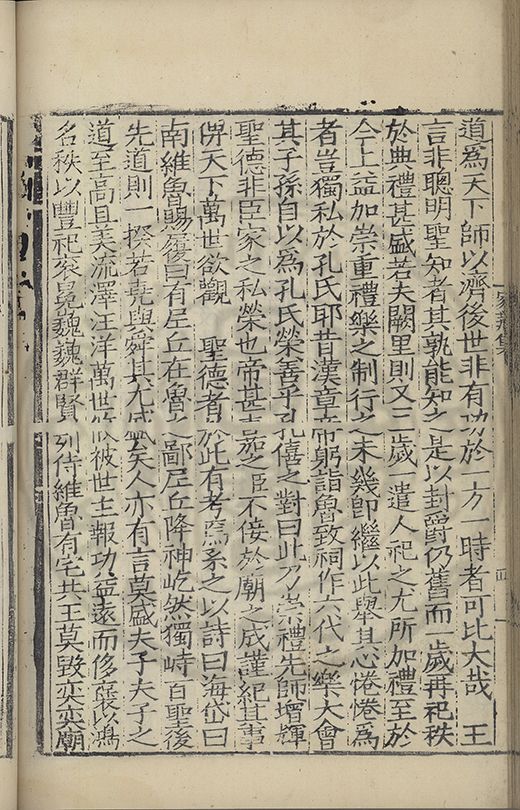 道爲天下師以濟後世非有功於一方一時者可比大哉　王
言非聰明聖知者其孰能知之是以封爵仍舊而一歲再祀秩
於典禮甚盛若夫闕里則又三歲一遣人祀之尤所加禮至於
今上益加崇重禮樂之制行之未幾即繼以此舉其心惓惓爲
者豈獨私於孔氏耶昔漢章帝躬詣魯致祠作六代之樂大會
其子孫自以爲孔氏榮善乎孔僖之對曰此乃崇禮先師增輝
聖德非臣家之私榮也帝甚嘉之臣不佞於廟之成謹紀其事
俾天下萬世欲觀　聖德者於此有考焉系之以詩曰海岱曰
南維魯賜履曰有尼丘在魯之鄙尼丘降神屹然獨峙百聖後
先道則一揆若堯與舜其尤盛矣人亦有言莫盛夫子夫子之
道至高且美流澤汪洋萬世攸被世主報功益遠而侈褒以鴻
名秩以豐祀袞冕巍巍群賢列侍維魯有宅共王莫毀奕奕廟